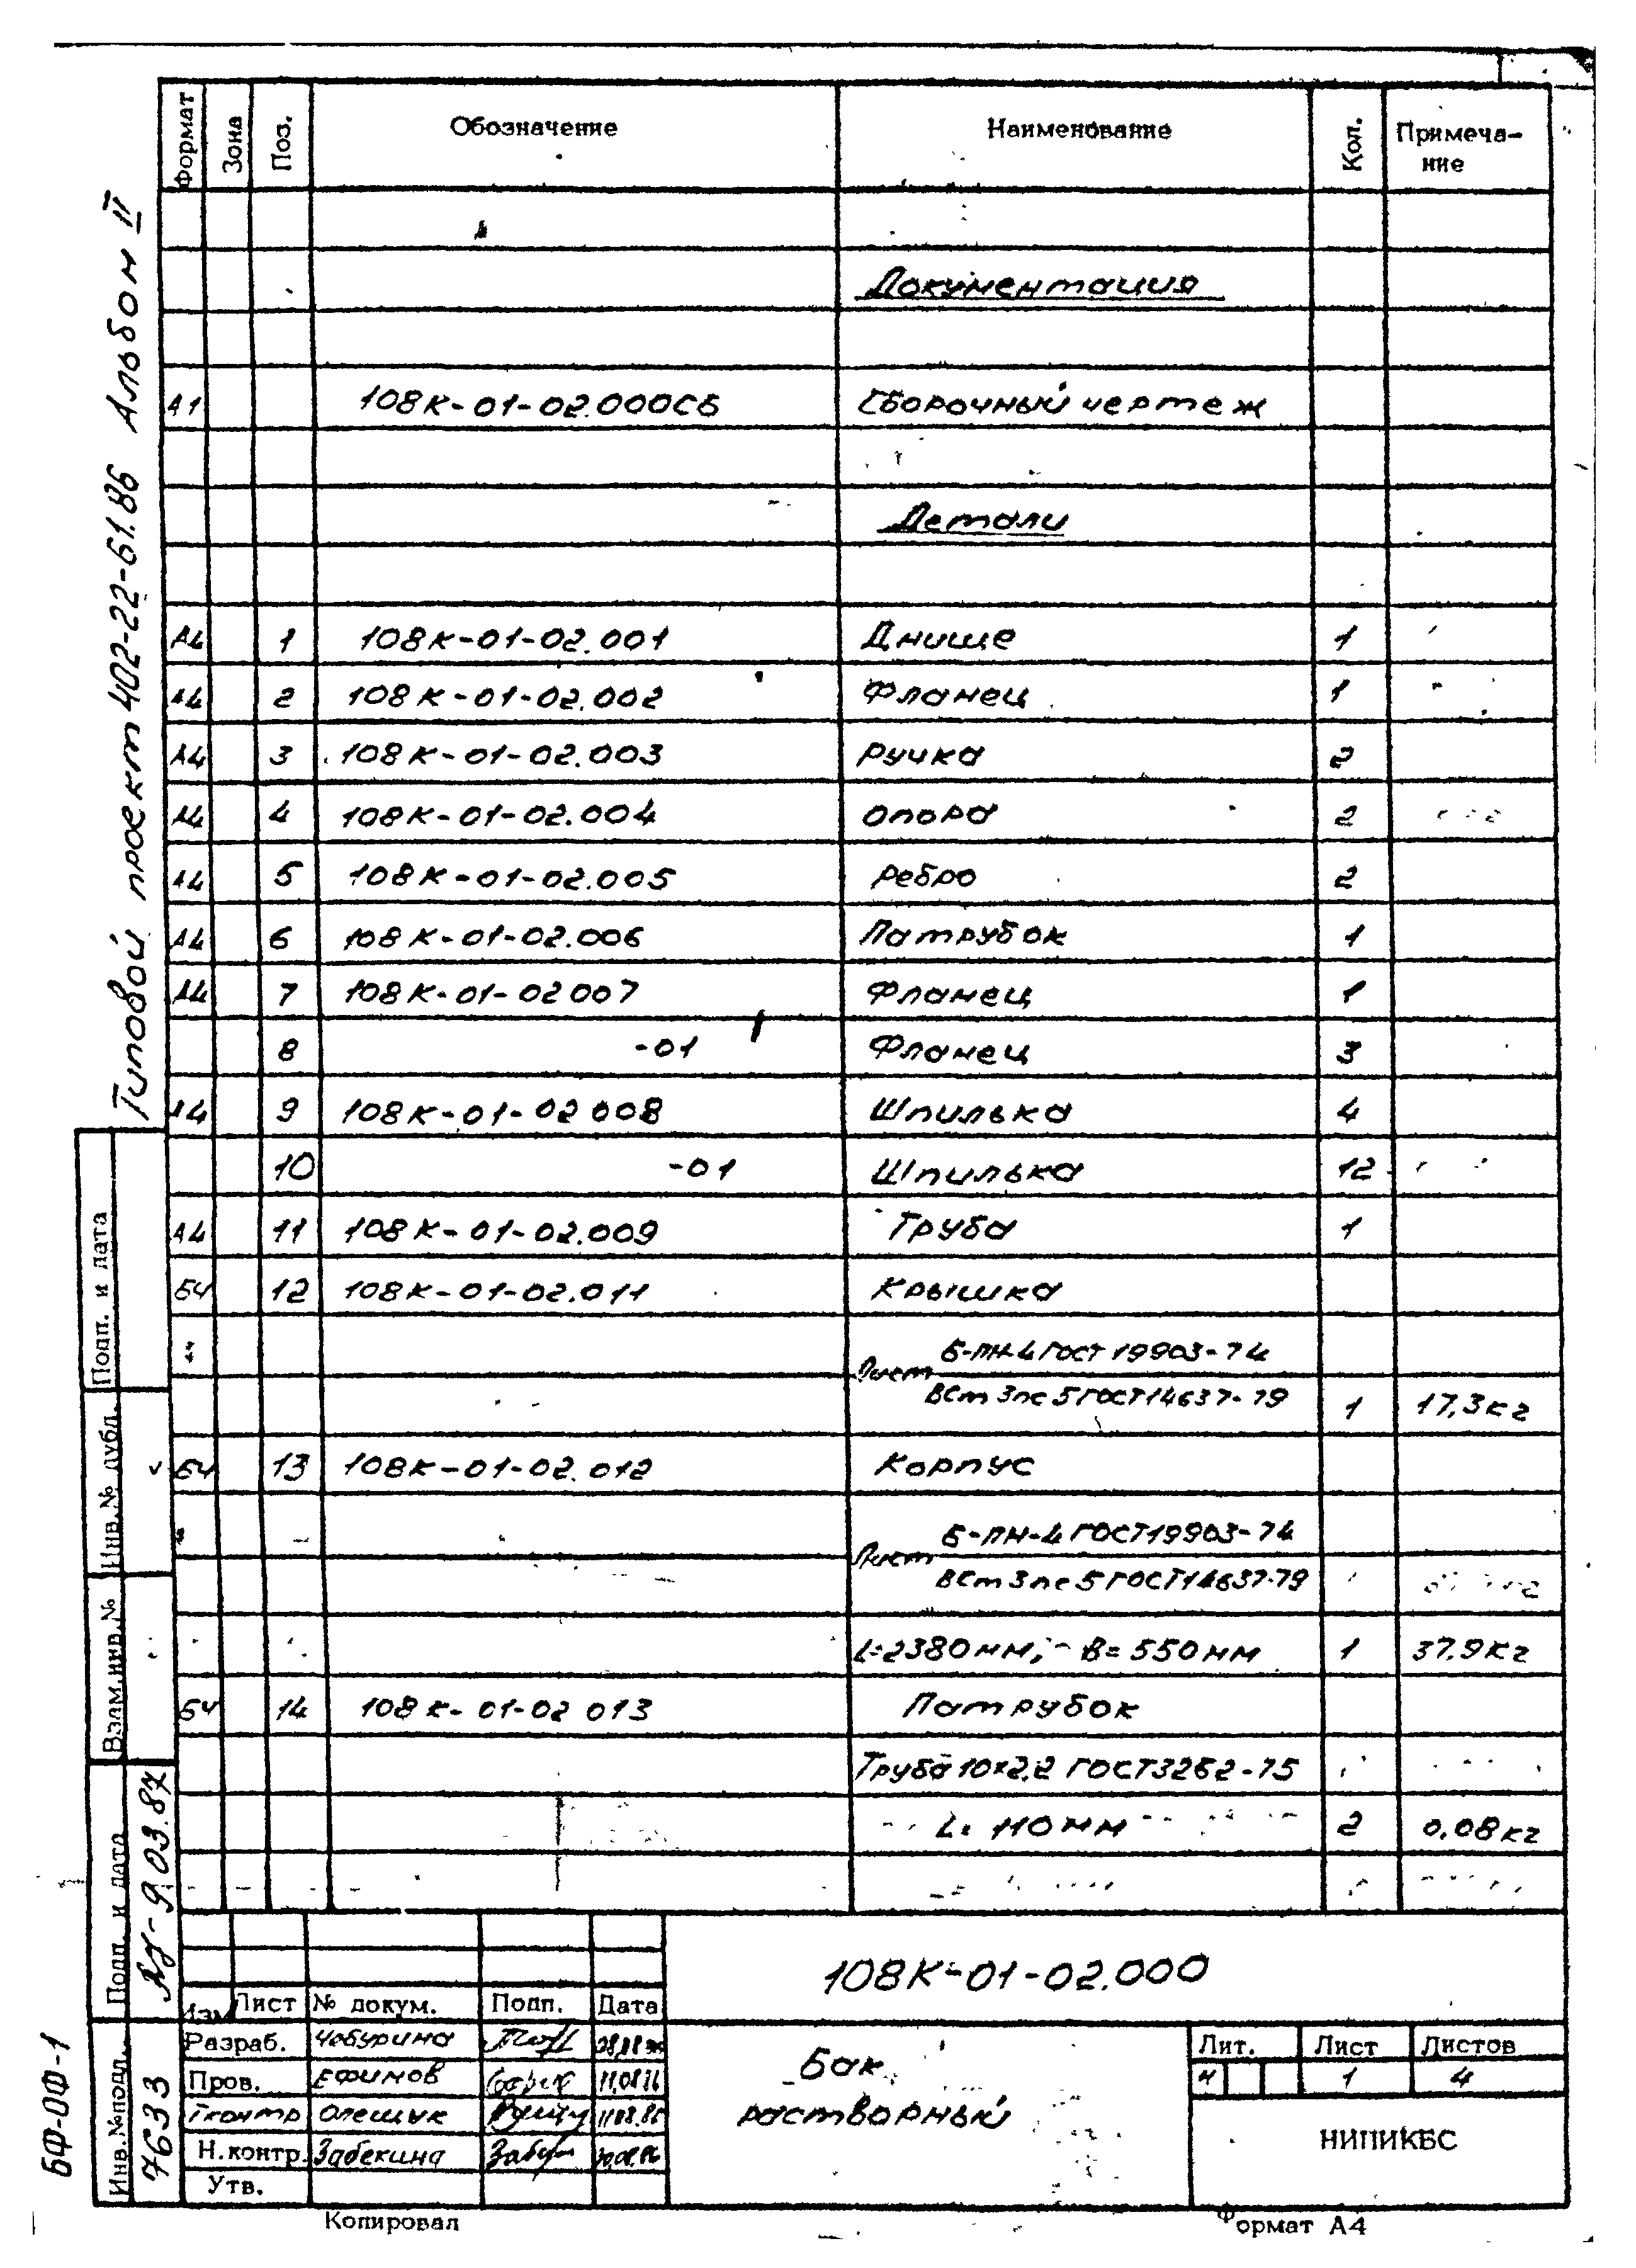 Формат Зона Поз. Обозначение Наименование Кол. Примеча-
ние
Документация
А1 108К-01-02.000СБ Сборочный чертеж
Детали
А4 1 108К-01-02.001 Днище 1
А4 2 108К-01-02.002 Фланец 1
А4 3 108К-01-02.003 Ручка 2
А4 4 108К-01-02.004 Опора 2
А4 5 108К-01-02.005 Ребро 2
А4 6 108К-01-02.006 Патрубок 1
А4 7 108К-01-02 007 Фланец 1
8 -01 Фланец 3
А4 9 108К-01-02 008 Шпилька 4
10 -01 Шпилька 12
А4 11 108К-01-02.009 Труба 1
БЧ 12 108К-01-02.011 Крышка
Б-ПН-4 ГОСТ 19903-74
Лист
ВСт3пс5 ГОСТ14637-79 1 17,3кг
БЧ 13 108К-01-02.012 Корпус
Б-ПН-4 ГОСТ19903-74
Лист
ВСт3пс5 ГОСТ14637-79
L=2380мм; B=550мм 1 37.9кг
БЧ 14 108К-01-02 013 Патрубок
Труба 10×2,2 ГОСТ3262-75
L= 110мм 2 0,08кг
Типовой проект 402-22-61.86 Альбом II
Подп. и дата
Инв.№ дубл.
Взам.инв.№
Подп. и дата 9.03.87
Инв.№подл. 7633
БФ-ОФ-1
108К-01-02.000
Изм Лист № докум. Подп. Дата
Разраб. Чабурина
Пров. Ефимов
Т.контр Олещук
Н.контр. Забекина
Утв.
Бак
растворный
Лит. Лист Листов
И 1 4
НИПИКБС
Копировал Формат А4